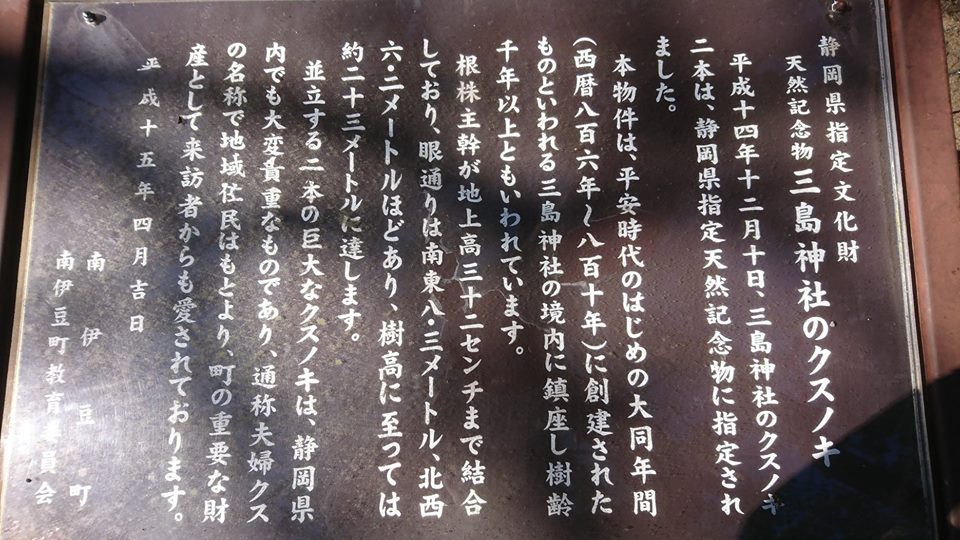 静岡県指定文化財
天然記念物 三島神社のクスノキ
平成十四年十二月十日、三島神社のクスノキ
二本は、静岡県指定天然記念物に指定され
ました。
本物件は、平安時代のはじめの大同年間
(西暦八百六年~八百十年)に創建された
ものといわれる三島神社の境内に鎮座し樹齢
千年以上ともいわれています。
根株主幹が地上高三十二センチまで結合
しており、眼通りは南東八・三メートル、北西
六・二メートルほどあり、樹高に至っては
約二十三メートルに達します。
並立する二本の巨大なクスノキは、静岡県
内でも大変貴重なものであり、通称夫婦クス
の名称で地域住民はもとより、町の重要な財
産として来訪者からも愛されております。
平成十五年四月吉日
南伊豆町
南伊豆町教育委員会